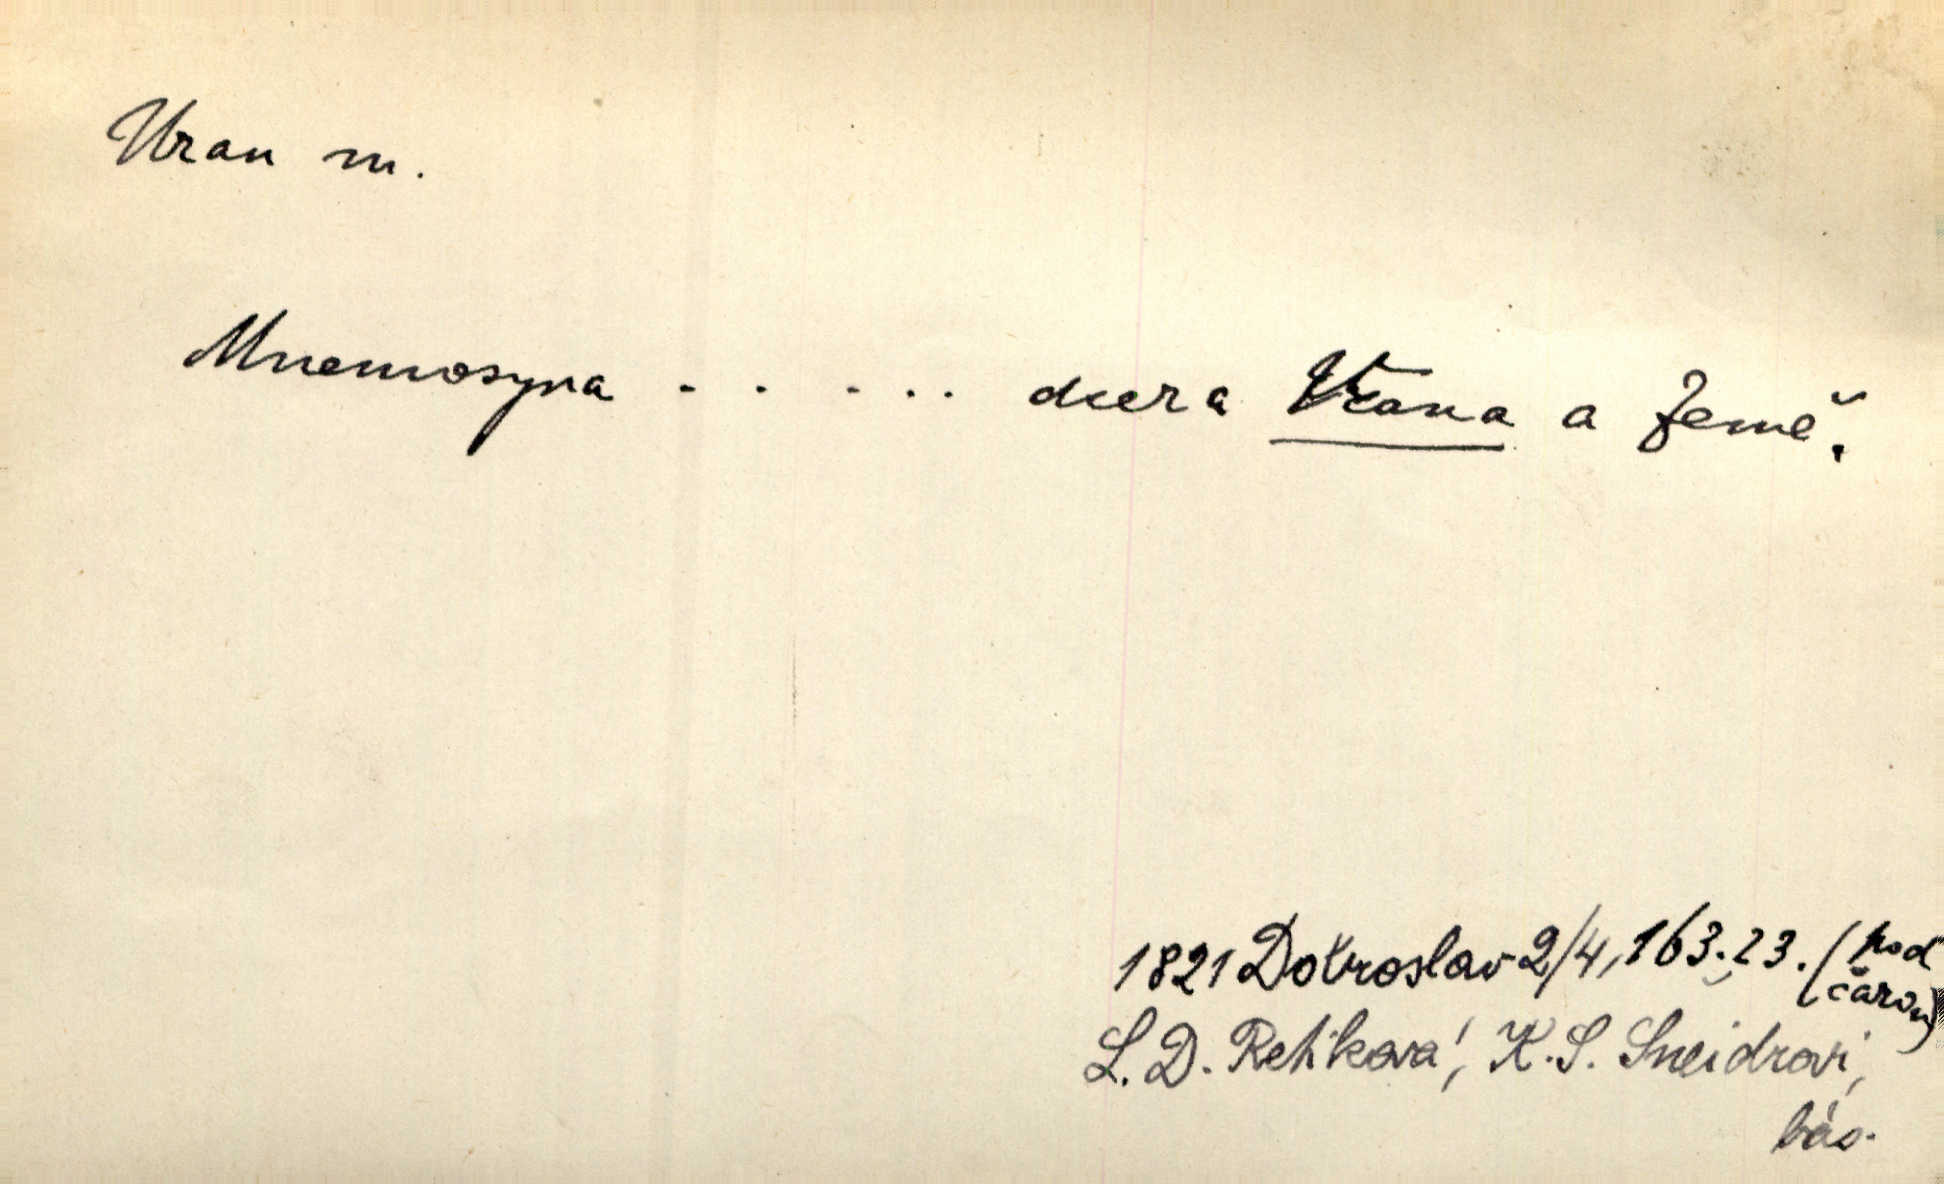 Uran m.
Mnemosyna . . . . . dcera Urana a Země.
1821 Dobroslav 2/4, 163.23. (pod
čarou)
L. D. Retíkova, K. S. Šneidrovi,
bás.